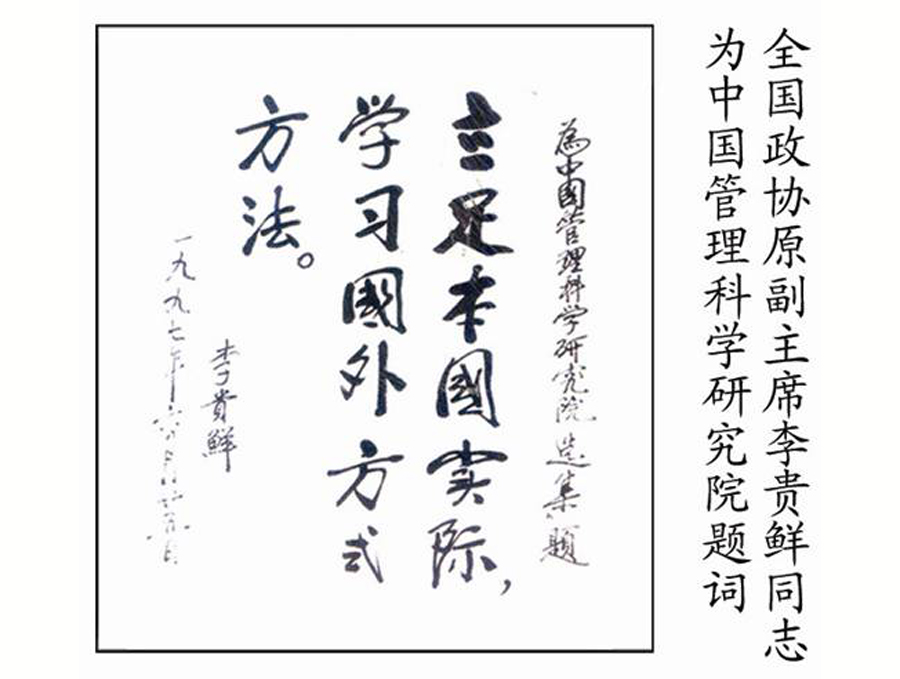 全国政协原副主席李贵鲜同志
为中国管理科学研究院题词
為中國管理科学研究院选集题
立足本國实际，
学习國外方式
方法。
李貴鮮
一九九七年六月廿五日